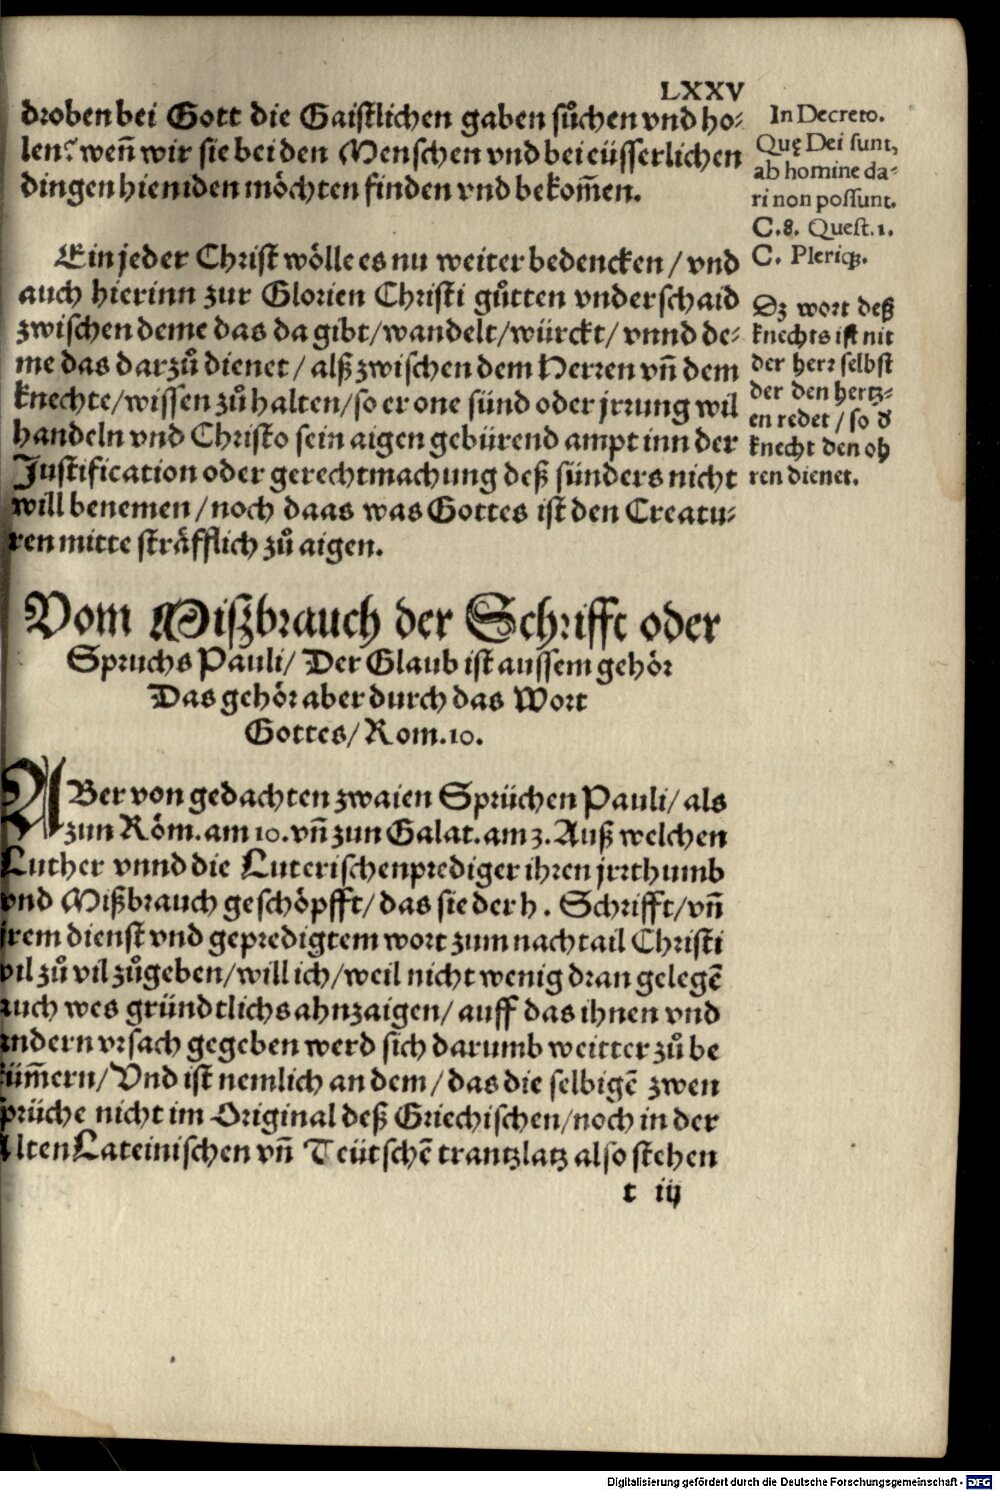 LXXV
droben bei Gott die Gaistlichen gaben sůchen vnd ho⸗
len? weñ wir sie bei den Menschen vnd bei eüsserlichen
dingen hieniden möchten finden vnd bekom̄en.
Ein jeder Christ wölle es nu weiter bedencken / vnd
auch hierinn zur Glorien Christi gůtten vnderschaid
zwischen deme das da gibt/wandelt/würckt/vnnd de⸗
me das darzů dienet / alß zwischen dem Herren vñ dem
knechte/wissen zů halten/so er one sünd oder jrrung wil
handeln vnd Christo sein aigen gebürend ampt inn der
Justification oder gerechtmachung deß sünders nicht
will benemen / noch daas was Gottes ist den Creatu⸗
ren mitte sträfflich zů aigen.
In Decreto.
Quę Dei sunt,
ab homine da⸗
ri non possunt.
C.8. Quest.1.
C. Pleriqꝫ.
Dz wort deß
knechts ist nit
der herr selbst
der den hertz⸗
en redet / so d
knecht den oh
ren dienet.
Vom Miszbrauch der Schrifft oder
Spruchs Pauli/ Der Glaub ist aussem gehör
Das gehör aber durch das Wort
Gottes/Rom.10.
ABer von gedachten zwaien Sprüchen Pauli/ als
zun Röm.am 10.vñ zun Galat.am 3.Auß welchen
Luther vnnd die Luterischen prediger ihren jrrthumb
vnd Mißbrauch geschöpfft/das sie der h. Schrifft/vñ
jrem dienst vnd gepredigtem wort zum nachtail Christi
vil zů vil zůgeben/will ich/weil nicht wenig dran gelegē
auch wes gründtlichs ahnzaigen/auff das ihnen vnd
andern vrsach gegeben werd sich darumb weitter zů be
küm̄ern/Vnd ist nemlich an dem/das die selbigē zwen
sprüche nicht im Original deß Griechischen/noch in der
Alten Lateinischen vñ Teütschē trantzlatz also stehen
t iij
Digitalisierung gefördert durch die Deutsche Forschungsgemeinschaft - DFG